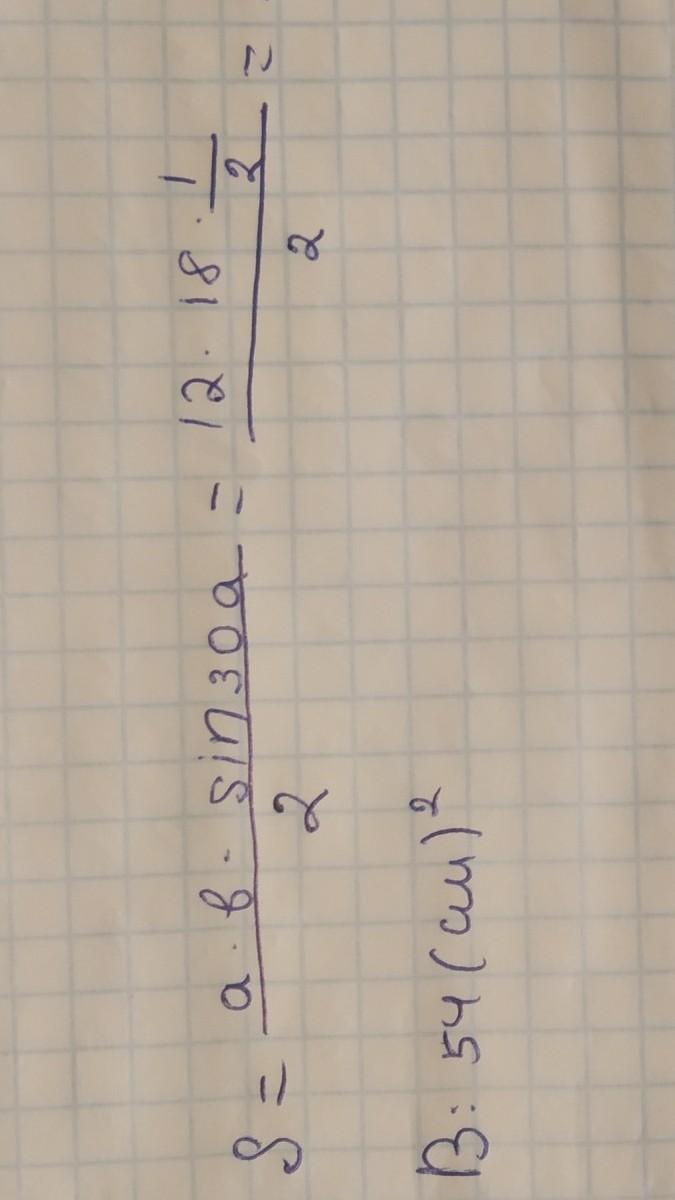 S = a · b · sin30a / 2 = 12 · 18 · 1/2 / 2 =
В: 54 (см)²